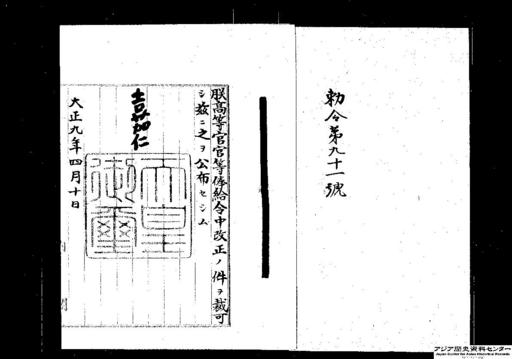 勅令第九十一號
朕高等官官等俸給令中改正ノ件ヲ裁可
シ玆ニ之ヲ公布セシム
嘉仁
天皇御璽
大正九年四月十日
アジア歴史資料センター
Japan Center for Asian Historical Records